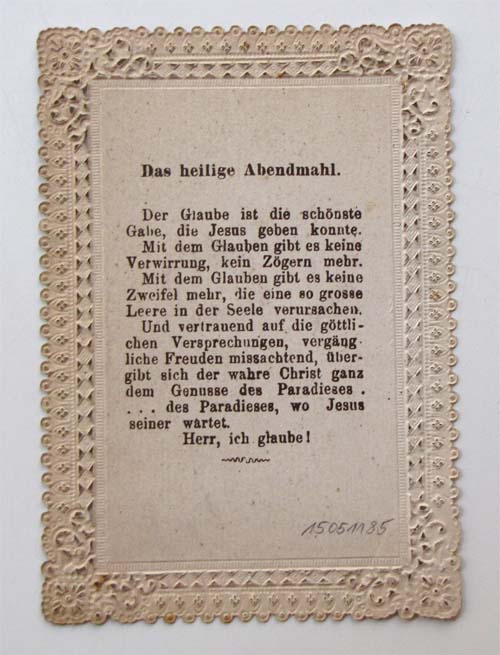 Das heilige Abendmahl.
Der Glaube ist die schönste
Gabe, die Jesus geben konnte.
Mit dem Glauben gibt es keine
Verwirrung, kein Zögern mehr.
Mit dem Glauben gibt es keine
Zweifel mehr, die eine so grosse
Leere in der Seele verursachen.
Und vertrauend auf die göttli-
chen Versprechungen, vergäng-
liche Freuden missachtend, über-
gibt sich der wahre Christ ganz
dem Genusse des Paradieses .
. . . des Paradieses, wo Jesus
seiner wartet.
Herr, ich glaube!
15051185